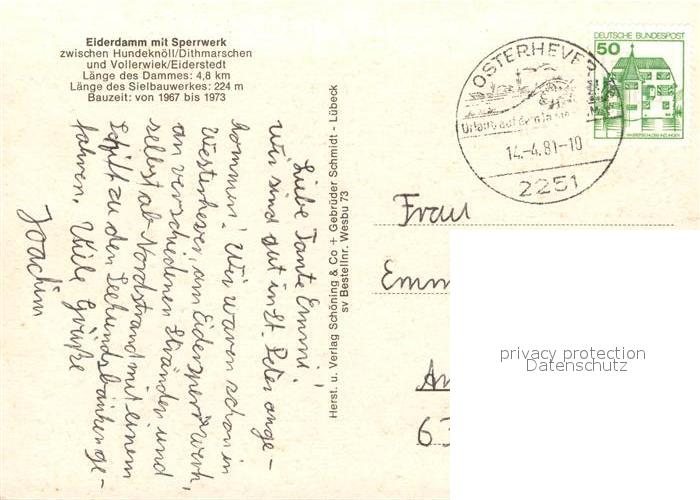 Eiderdamm mit Sperrwerk
zwischen Hundeknöll/Dithmarschen
und Vollerwiek/Eiderstedt
Länge des Dammes: 4,8 km
Länge des Sielbauwerkes: 224 m
Bauzeit: von 1967 bis 1973
Liebe Tante Emmi!
Wir sind gut in St. Peter ange-
kommen! Wir waren schon in
Westerhever, am Eidersperrwerk,
an verschiedenen Stränden und
selbst ab Nordstrand mit einem
Schiff zu den Seehundsbänken ge-
fahren. Viele Grüße
Joachim
Herst. u. Verlag Schöning & Co + Gebrüder Schmidt - Lübeck
sv Bestellnr. Wesbu 73
OSTERHEVER
Urlaub auf dem
14.-4.81-10
2251
DEUTSCHE BUNDESPOST
50
WASSERSCHLOSS INZLINGEN
Frau
Emm
63
privacy protection
Datenschutz